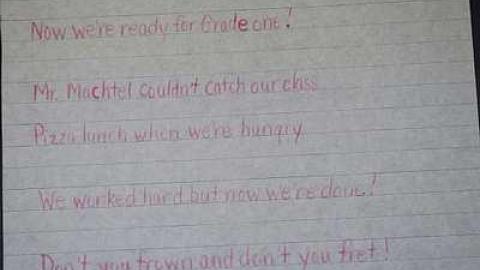 Now we're ready for Grade one!
Mr. Machtel couldn't catch our class
Pizza lunch when we're hungry
We worked hard but now we're done!
Don't you frown and don't you fret!